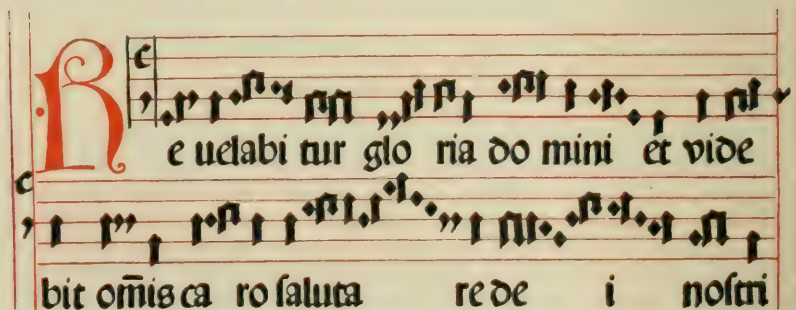 Re uelabi tur glo ria do mini et vide
bit om̄is ca ro saluta re de i nostri